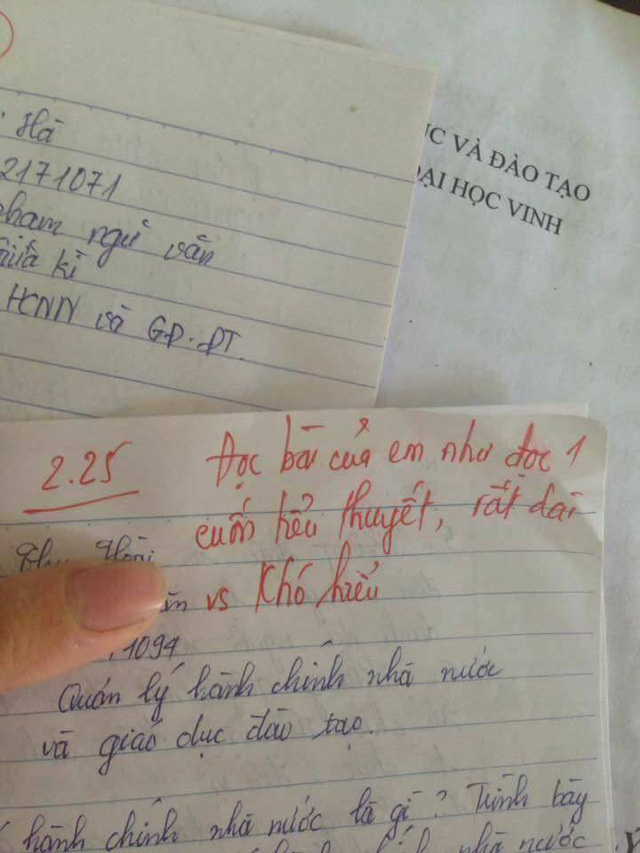 Hà
2171071
phạm ngữ văn
giữa kì
HCNN và GD-ĐT
ỤC VÀ ĐÀO TẠO
ĐẠI HỌC VINH
2.25
Đọc bài của em như đọc 1
cuốn tiểu thuyết, rất dài
vs khó hiểu
1094
Quản lý hành chính nhà nước
và giáo dục đào tạo.
hành chính nhà nước là gì? Trình bày
nhà nước